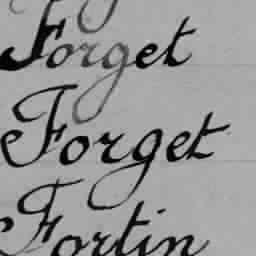 Forget
Forget
Fortin